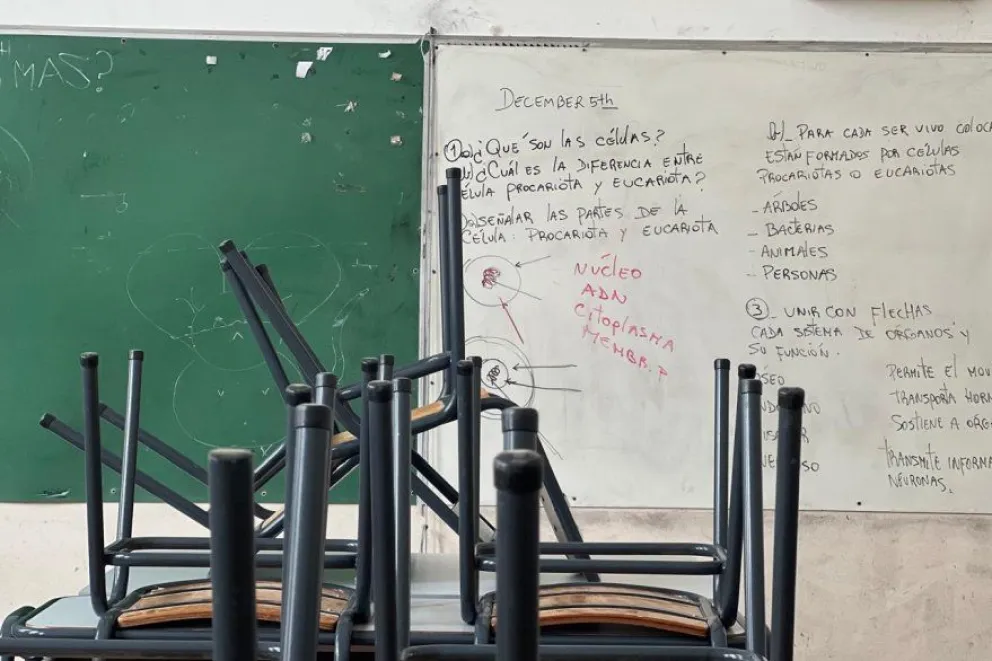 MAS?
DECEMBER 5th
① a) ¿QUÉ SON LAS CÉLULAS?
b) ¿CUÁL ES LA DIFERENCIA ENTRE
CÉLULA PROCARIOTA Y EUCARIOTA?
SEÑALAR LAS PARTES DE LA
CÉLULA: PROCARIOTA Y EUCARIOTA
NÚCLEO
ADN
CITOPLASMA
MEMBR. P
PARA CADA SER VIVO COLOCA
ESTÁN FORMADOS POR CÉLULAS
PROCARIOTAS O EUCARIOTAS
- ÁRBOLES
- BACTERIAS
- ANIMALES
- PERSONAS
③ - UNIR CON FLECHAS
CADA SISTEMA DE ORGANOS Y
SU FUNCIÓN.
PERMITE EL MOV
TRANSPORTA HORM
SOSTIENE A ORG
TRANSMITE INFORMA
NEURONAS.